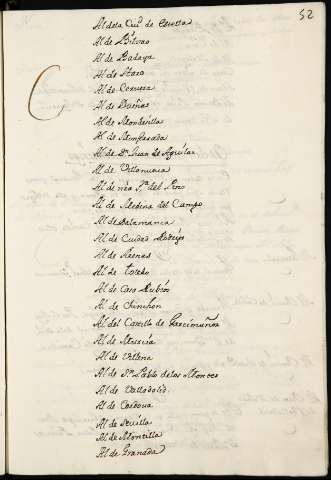 52
Al dela Ciu.d de
Al de Bilvao
Al de Badaya
Al de Haro
Al de Cervera
Al de Dueñas
Al de Mondexar
Al de
Al de D.n Juan de Aguilar
Al de Villanueva
Al de nra S.ra del Pino
Al de Medina del Campo
Al de Salamanca
Al de Ciudad Rodrigo
Al de Arenas
Al de Toledo
Al de Casa Rubios
Al de Chinchon
Al del Castillo de Garcimuñoz
Al de Murcia
Al de Villena
Al de S.n Pablo de los Montes
Al de Valladolid.
Al de Cordova
Al de Sevilla
Al de Montilla
Al de Granada